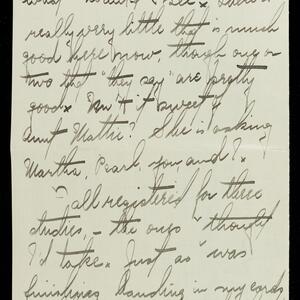 really very little that is much
good here now, though one or
two that "they say" are pretty
good. Isn't it sweet of
Aunt Mattie? She is asking
Martha, Pearl, you and I.
I all registered for three
studies, - the ones I thought
I'd take. Just as I was
finishing handing in my cards